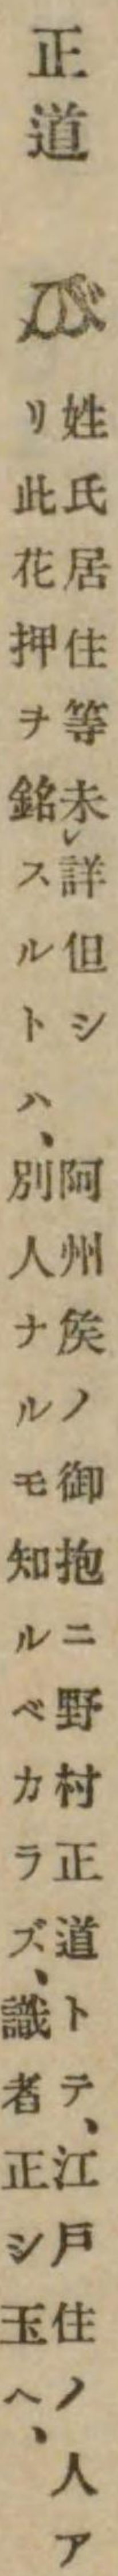 正道
姓氏居住等未㆑詳但シ阿州侯ノ御抱ニ野村正道トテ、江戸住ノ人ア
リ此花押ヲ銘スルトハ、別人ナルモ知ルベカラズ、識者正シ玉ヘ、